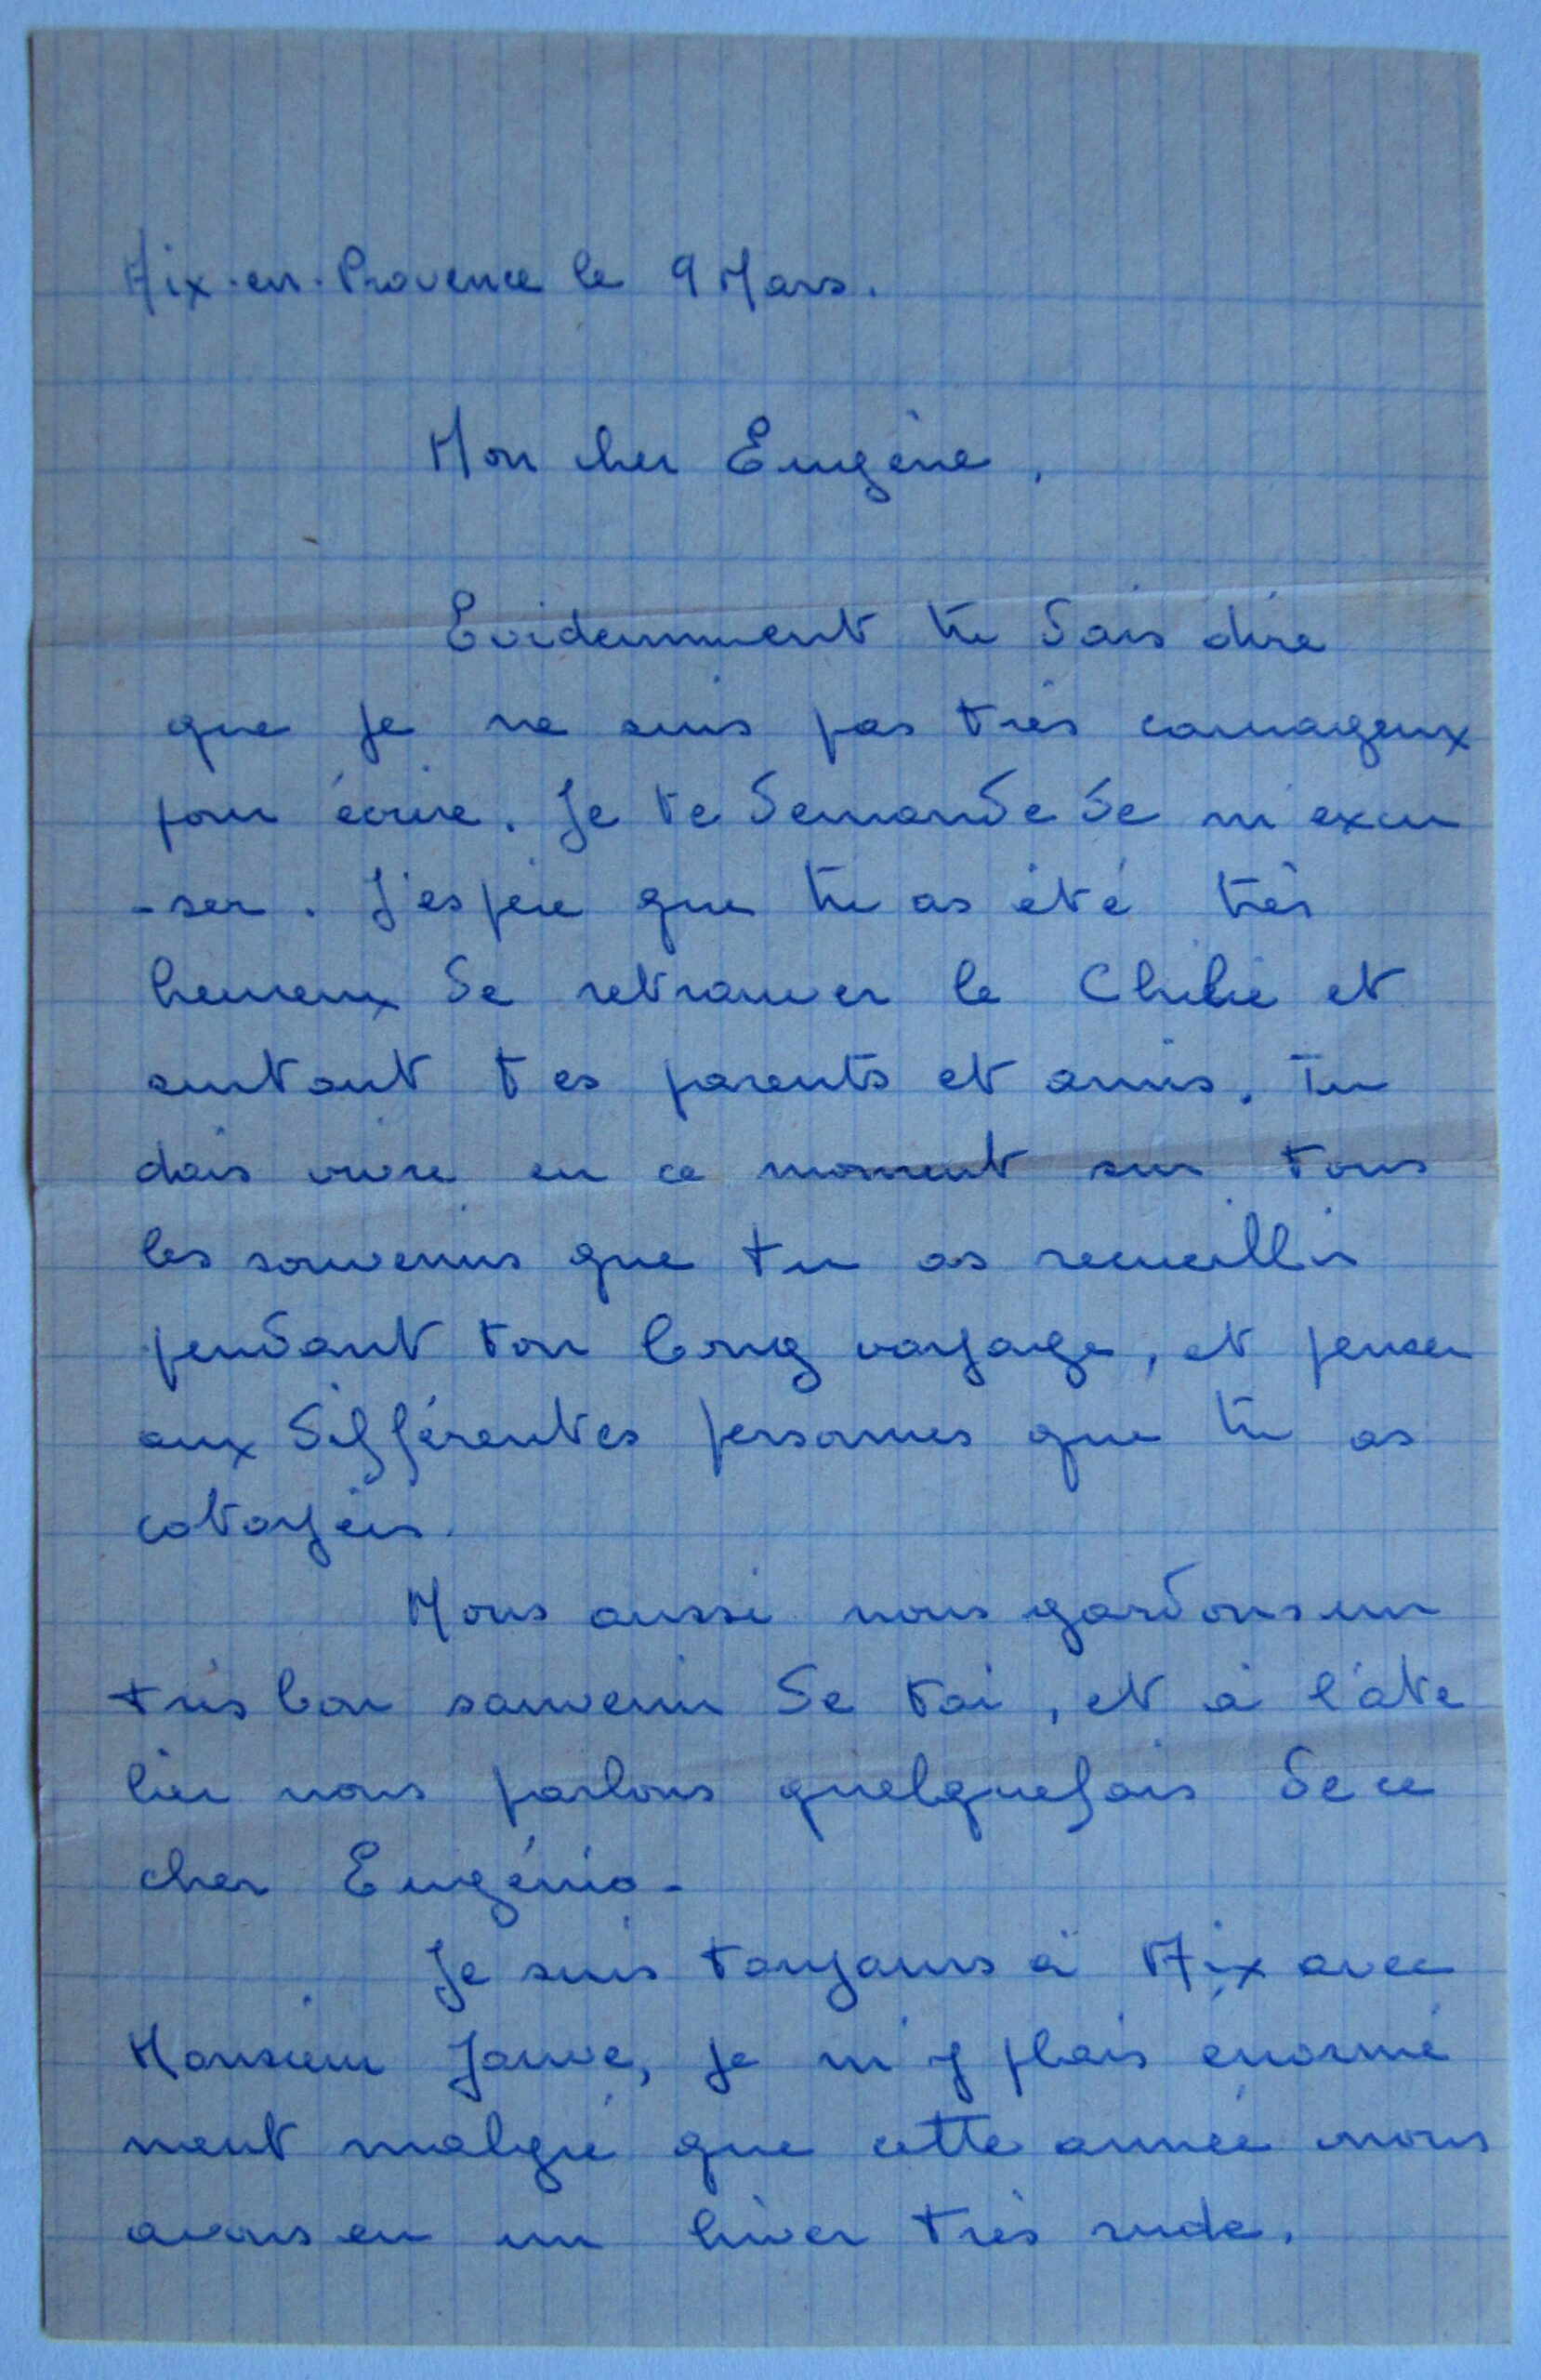 Aix-en-Provence le 9 Mars.
Mon cher Eugène,
Evidemment tu dois dire
que je ne suis pas très courageux
pour écrire. Je te demande de m'excu
-ser. J'espère que tu as été très
heureux de retrouver le Chilie et
surtout tes parents et amis. Tu
dois vivre en ce moment sur tous
les souvenirs que tu as recueillis
pendant ton long voyage, et penser
aux différentes personnes que tu as
cotoyées.
Nous aussi nous gardons un
très bon souvenir de toi, et à l'ate
lier nous parlons quelquefois de ce
cher Eugénio-
Je suis toujours à Aix avec
Monsieur Jouve, je m'y plais énormé
ment malgré que cette année nous
avons eu un hiver très rude.